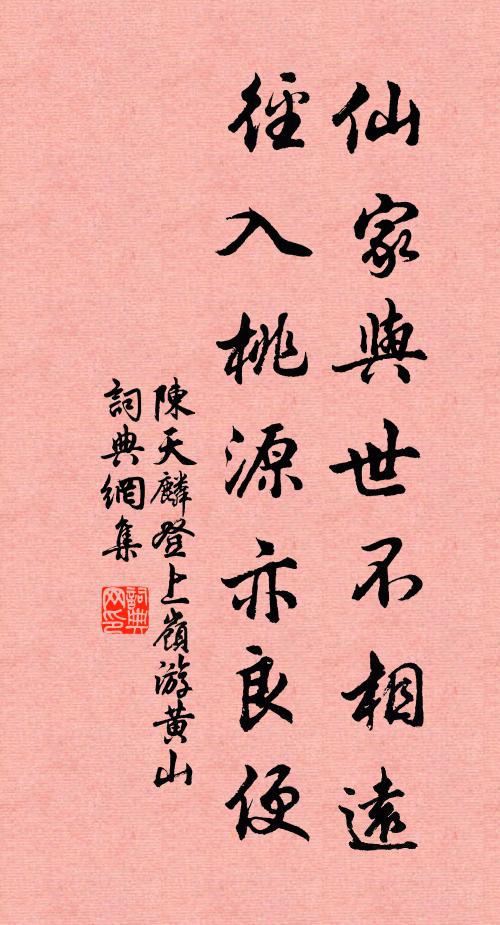 仙家與世不相遠
徑入桃源亦良便
陳天麟登上嶺游黃山
詞典網集
詞典
网印